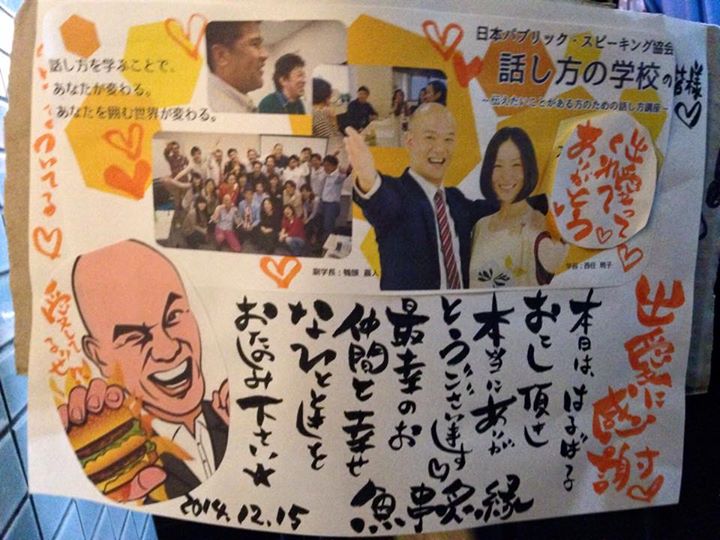 日本パブリック・スピーキング協会
話し方の学校の皆様♡
～伝えたいことがある方のための話し方講座～
話し方を学ぶことで、
あなたが変わる。
あなたを囲む世界が変わる。
出愛って
くれて
ありがとう
副学長：鴨頭 嘉人
学長：西任 暁子
ついてる♡
愛してる
ぜ!!
出愛に
感謝す♡
本日は、はるばる
おこし頂き
本当にありが
とうございます♡
最幸のお
仲間と幸せ
なひとときを
おたのしみ下さい★
魚串炙縁
2014.12.15